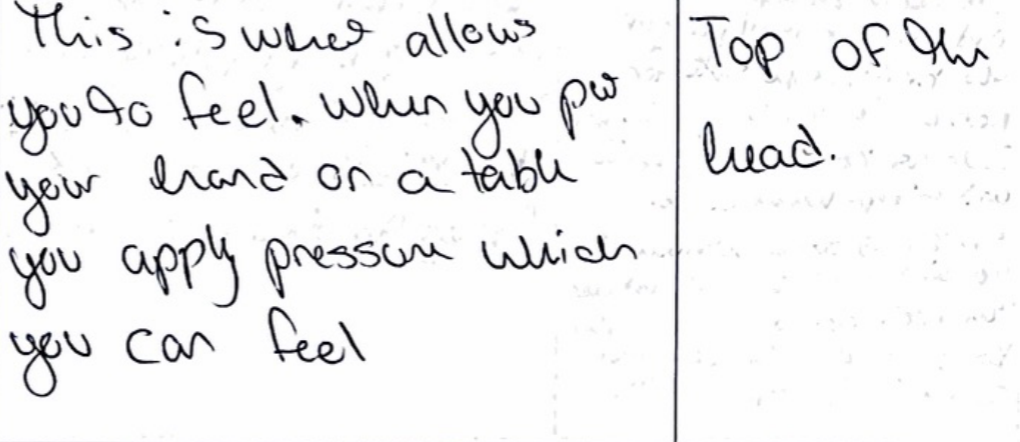 This is what allows
you to feel. When you put
your hand on a table
you apply pressure which
you can feel
Top of the
head.